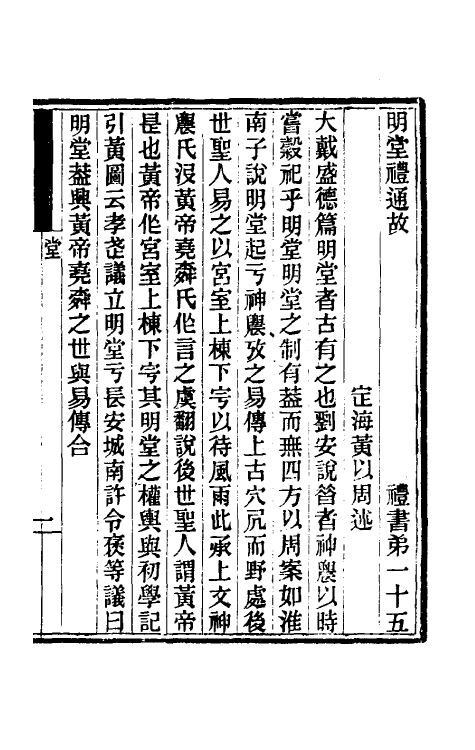 明堂禮通故　禮書弟一十五
定海黃以周述
大戴盛德篇明堂者古有之也劉安說昔者神農以時
嘗穀祀乎明堂明堂之制有葢而無四方以周案如淮
南子說明堂起亏神農攷之易傳上古穴凥而野處後
世聖人易之以宮室上棟下宇以待風雨此承上文神
農氏沒黃帝堯舜氏作言之虞翻說後世聖人謂黃帝
是也黃帝作宮室上棟下宇其明堂之權輿與初學記
引黃圖云孝武議立明堂亏長安城南許令裦等議曰
明堂葢興黃帝堯舜之世與易傳合
堂
一